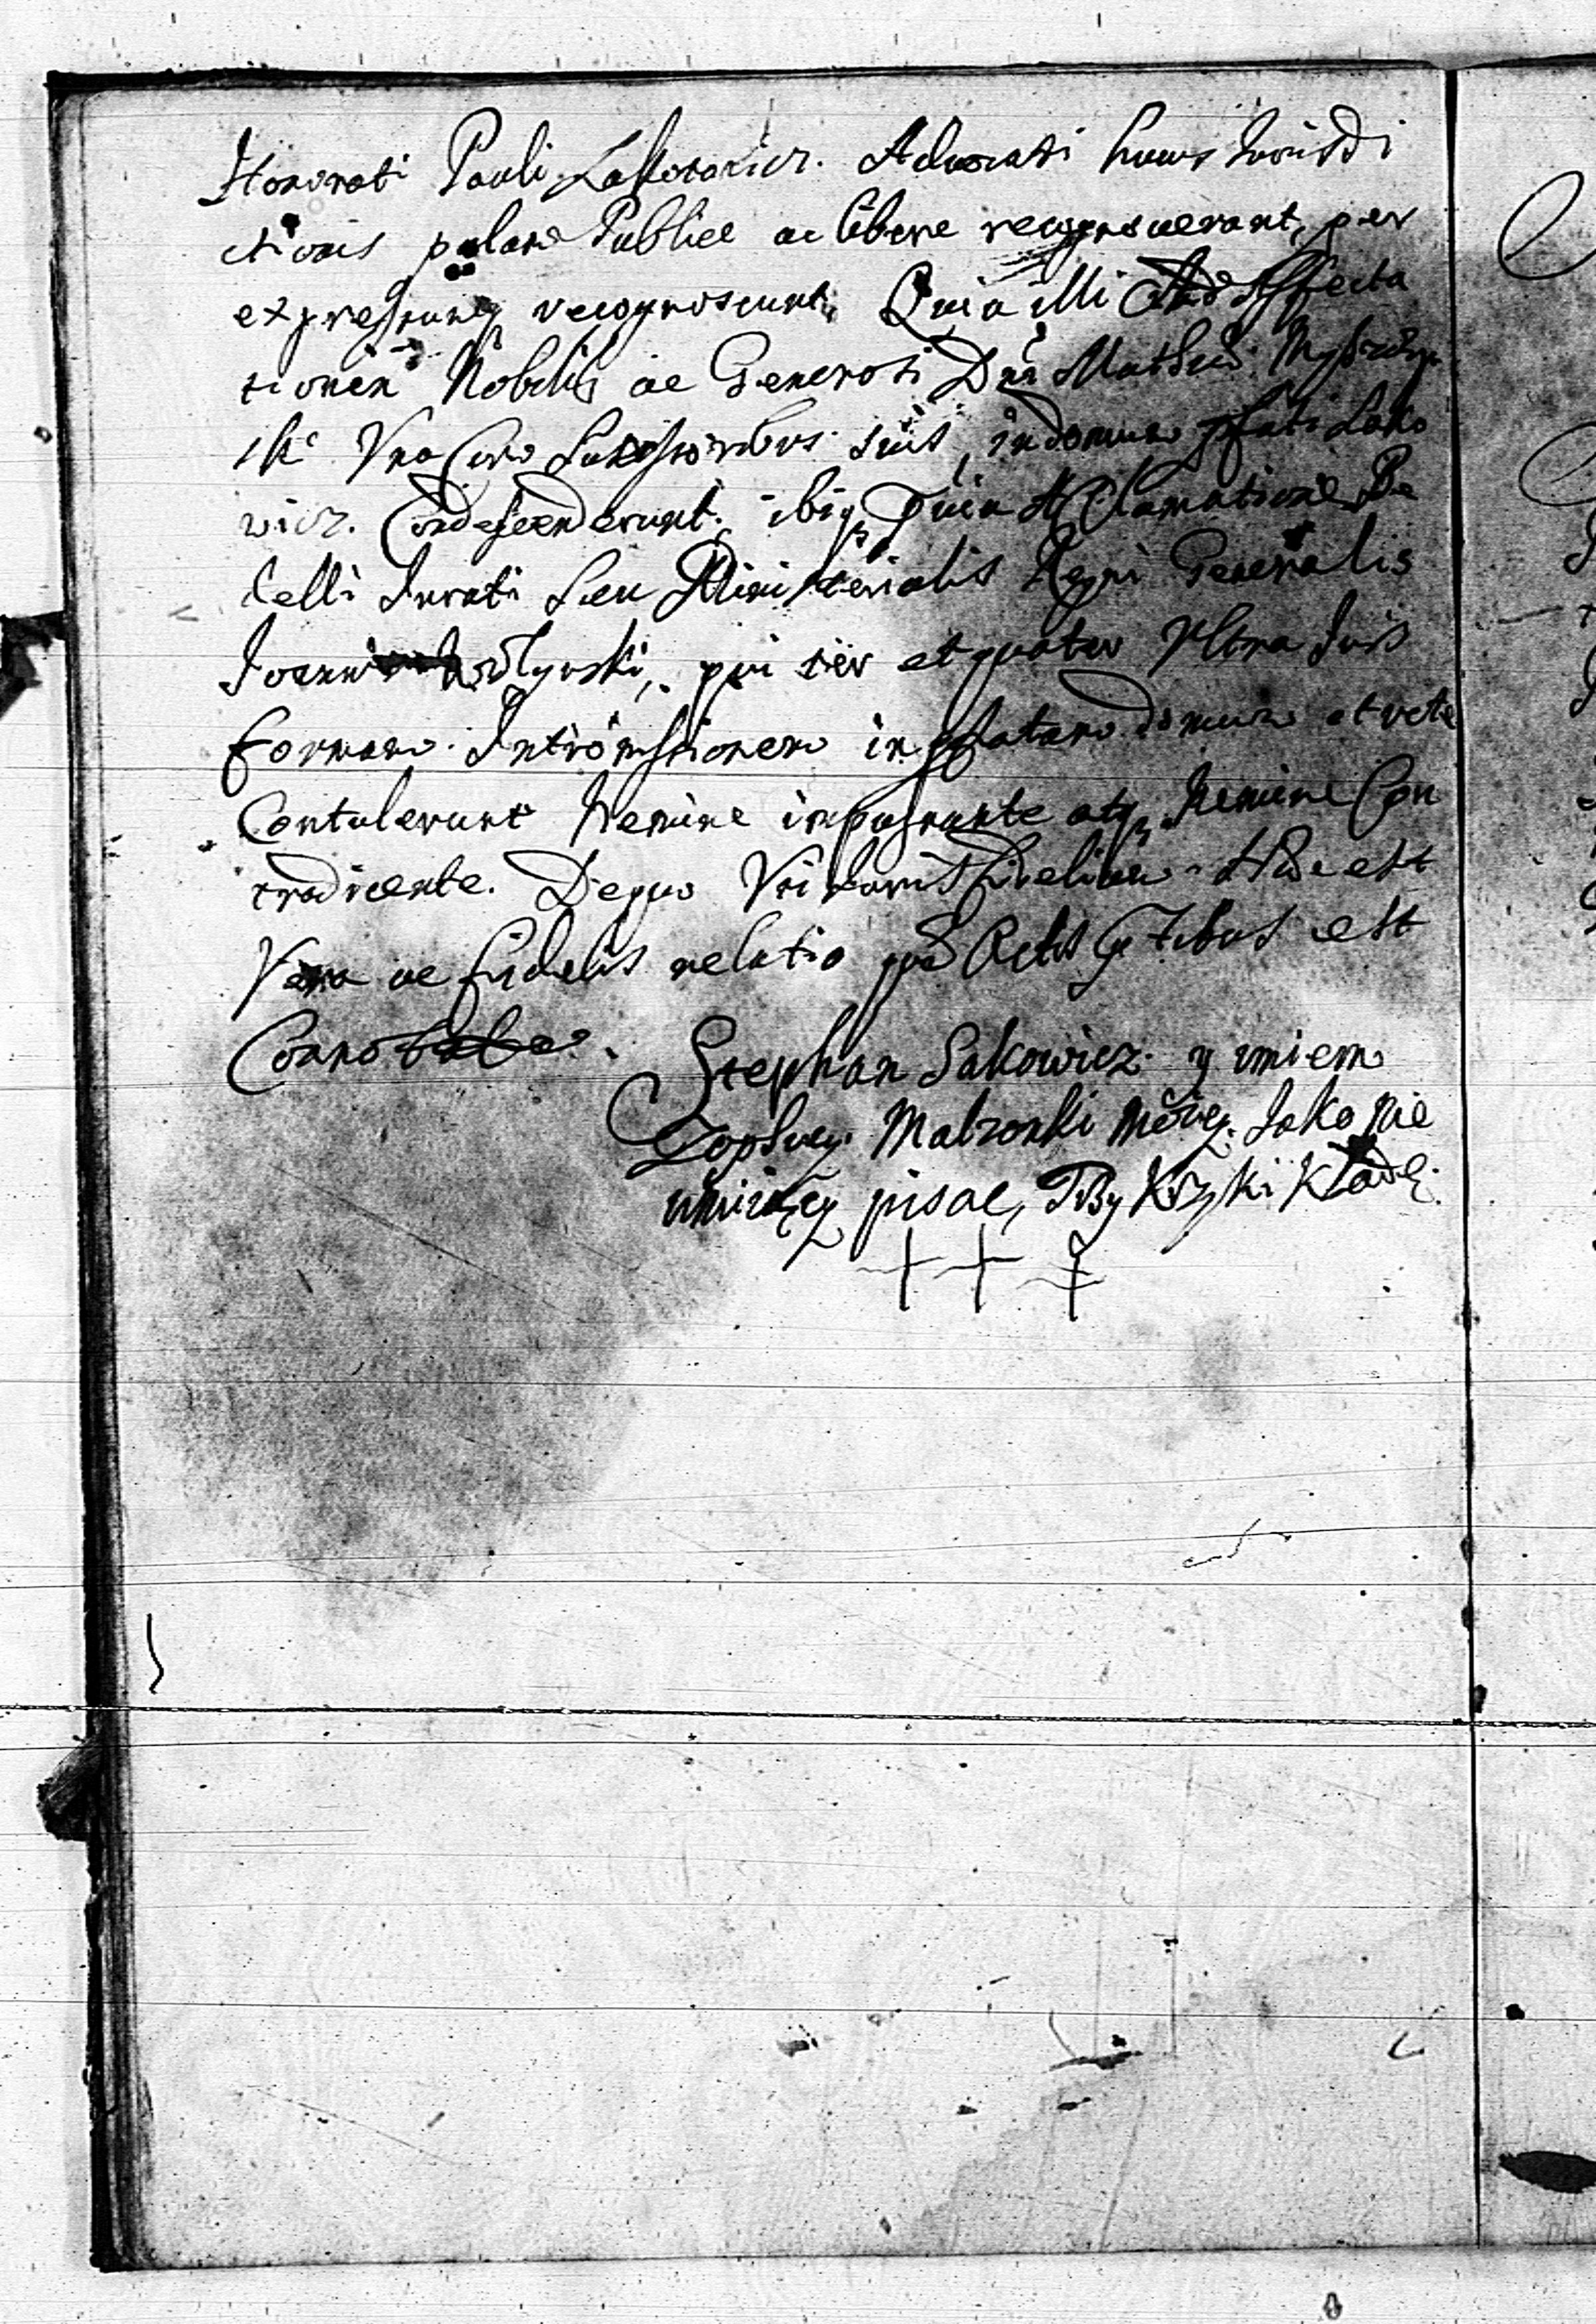 Honorati Pauli Lakotowicz. Advocati huius Iurisdi
ctionis palam Publice ac libere recognoverunt, per
expressumq recognoscunt, Quia illi Ad Affecta
tionem Nobilis ac Generosi Dni Mathei
ski Una Cum Successoribus suis, in domum pfati Lako
wicz. Condescenderunt. ibiq Previa Proclamatione Be
delli Iurati Seu Ministerialis Regni Generalis
Ioannis Wolynski, qui ter et quater Ultra Iuris
formam. Intromissionem in pfatam domum
Contulerunt Nemine impugnante atq Nemine Con
tradicente. Dequo est
Vera ac fidelis relatio Actis est
Connotata.
Stephan Sakowicz y imiem
Zophiey Malzonki Moiey. Jako nie
umieięcy pisac, Trzy Krzyki Kładę.
+ + +